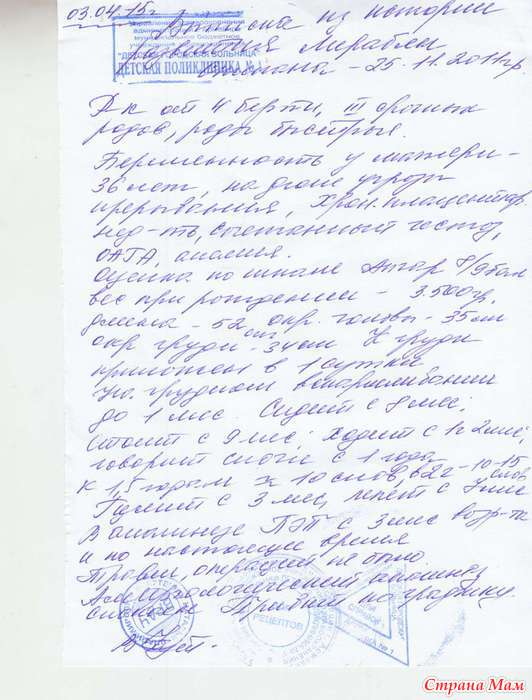 03.04.15г. Выписка из истории
развития
"ДЕТСКАЯ ГОРОДСКАЯ БОЛЬНИЦА"
ДЕТСКАЯ ПОЛИКЛИНИКА № 1
- 25.11.2011гр
Р-к от 4 берем, III срочных
родов, роды быстрые.
Беременность у матери -
36 лет, на фоне угрозы
прерывания, Хрон. плацентар.
нед-ть, сочетанный гестоз,
ОАГА, анемия.
Оценка по шкале Апгар 8/9 бал
вес при рождении - 3.500гр,
длина - 52 см, окр. головы - 35см
окр груди - 34см К груди
приложен в 1 сутки
На грудном вскармливании
до 1 мес Сидит с 8 мес,
Стоит с 9 мес; Ходит с 1г 2мес
говорит слоги с 1 года
к 1,5 годам 10 слов, в 2г - 10-15 слов
Гулит с 3 мес, лепет с
В анамнезе с 3 мес возр-та
и по настоящее время
Травм, операций не было
Аллергологический анамнез
Прививки по графику.
ВРАЧ
ДЛЯ РЕЦЕПТОВ
Страна Мам